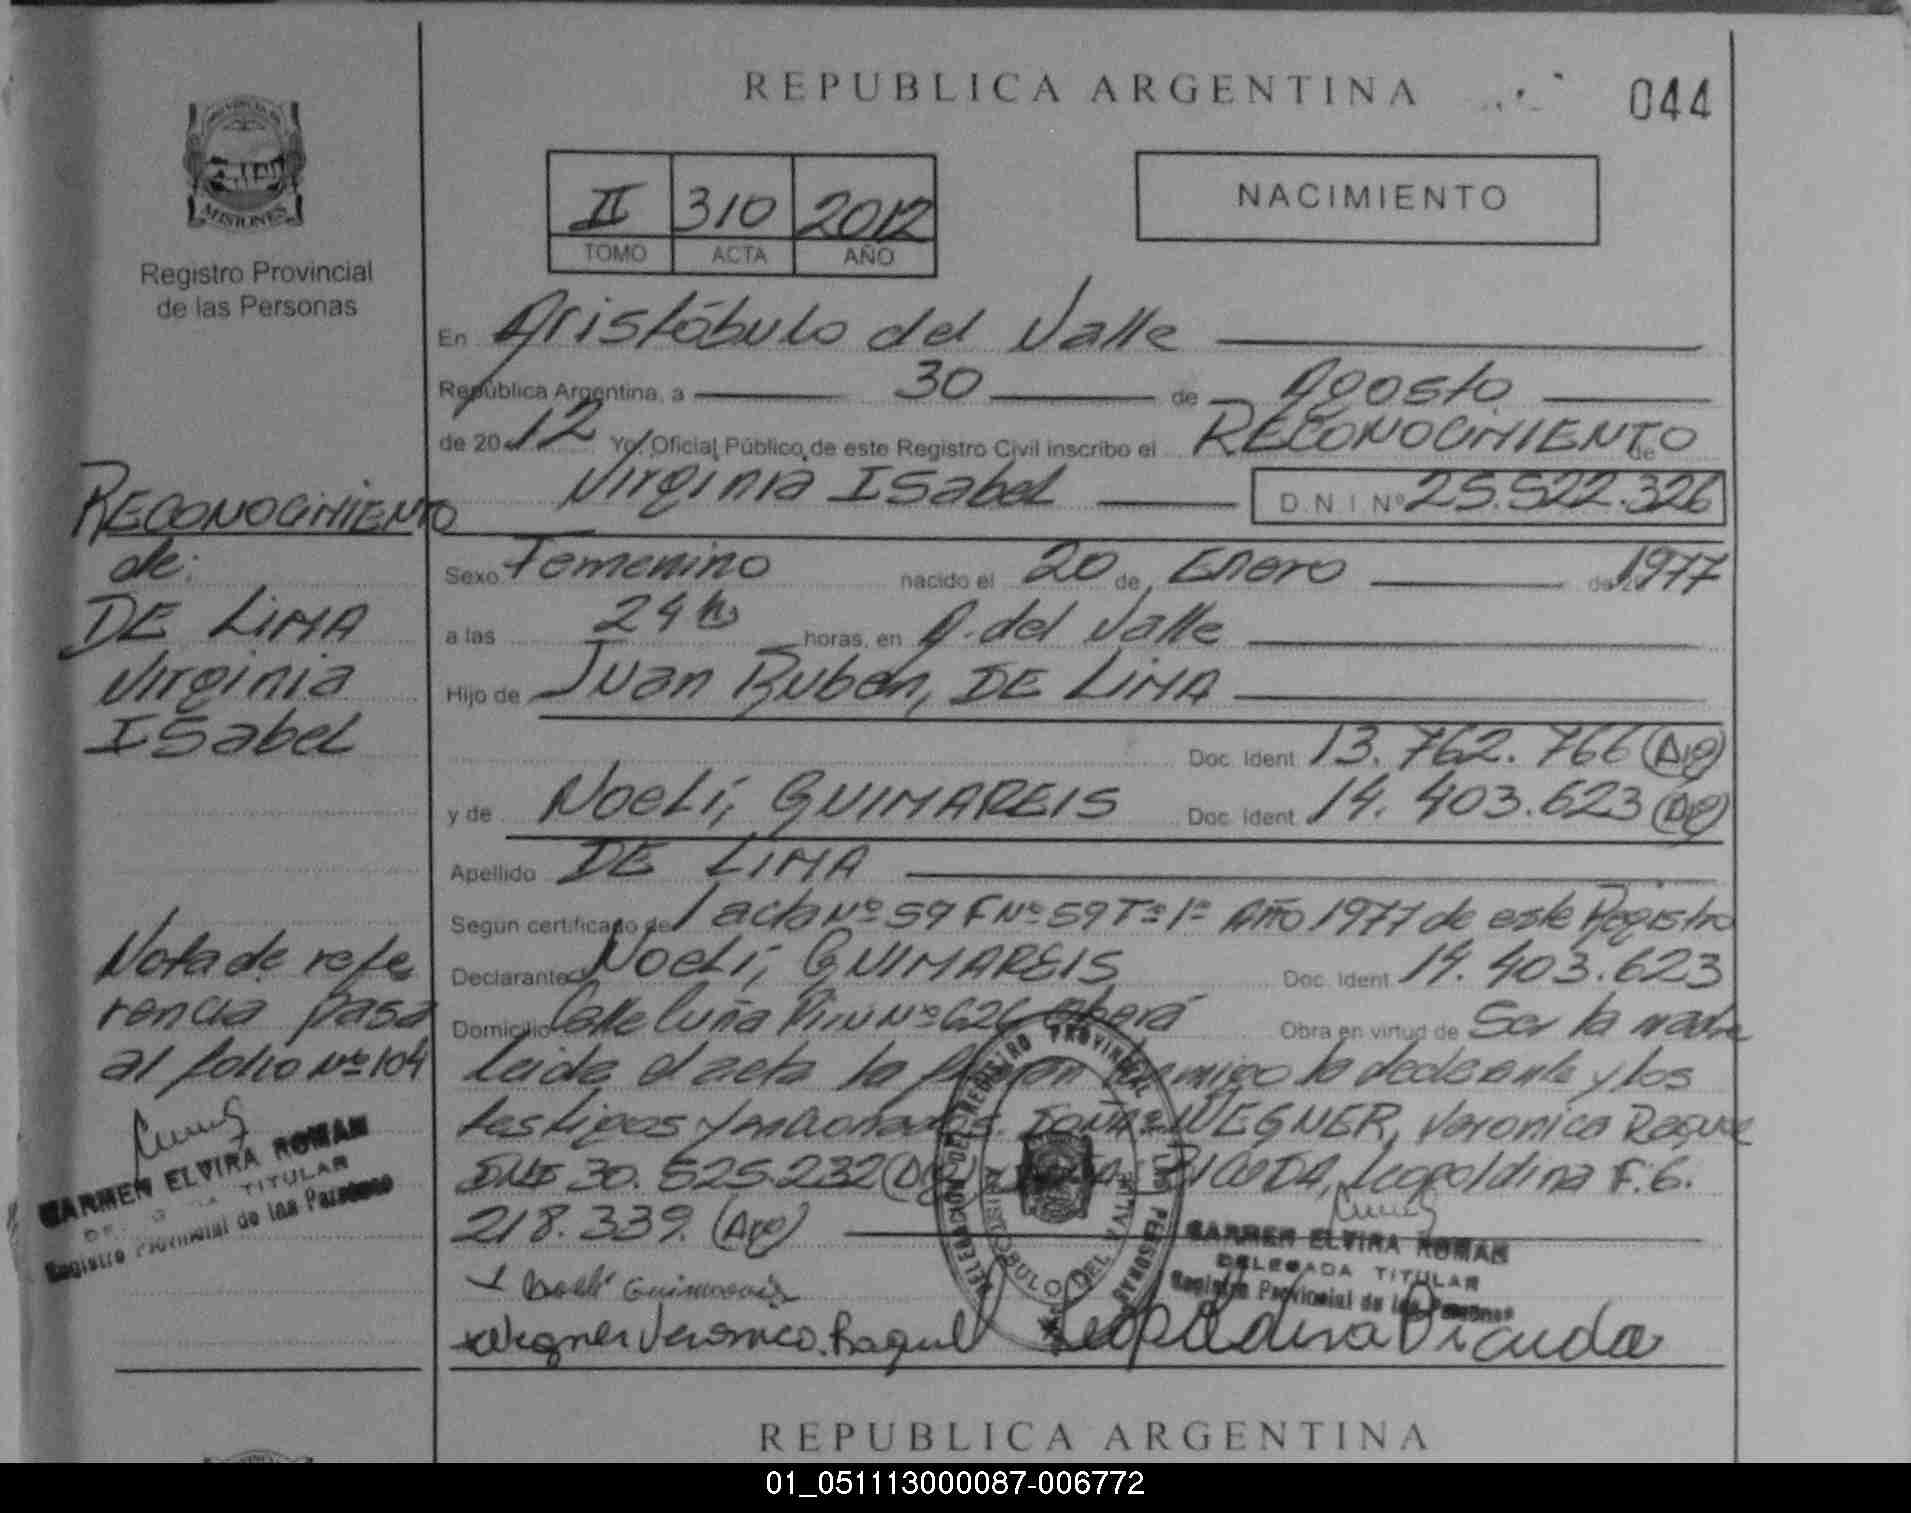 REPUBLICA ARGENTINA
044
MISIONES
Registro Provincial
de las Personas
II 310 2012
TOMO ACTA AÑO
NACIMIENTO
En Aristóbulo del Valle
República Argentina, a 30 de Agosto
de 20 12 Yo, Oficial Público de este Registro Civil inscribo el RECONOCIMIENTO de
Virginia ISabel D.N.I Nº 25.522.326
RECONOCIMIENTO
de:
DE LIMA
Virginia
ISabel
Sexo Femenino nacido el 20 de Enero de 1977
a las 24 hs horas, en A. del Valle
Hijo de Juan Ruben, DE LIMA
Doc. Ident. 13.762.766 (Arg)
y de Noelí, GUIMAREIS Doc. Ident. 14.403.623 (Arg)
Apellido DE LIMA
Según certificado de acta Nº 59 F Nº 59 Tº 1º Año 1977 de este Registro
Declarante Noelí, GUIMAREIS Doc. Ident. 14.403.623
Domicilio Calle Nº 626 Oberá Obra en virtud de Ser la madre
Leida el acta la conmigo la declarante y los
testigos WEGNER, Veronica Raquel
DNI 30.525.232 PICUDA, Leopoldina F. 6.
218.339. (Arg)
Nota de refe
rencia pasa
al folio Nº 104
CARMEN ELVIRA ROMAN
TITULAR
Registro Provincial de las Personas
DELEGACION DEL REGISTRO PROVINCIAL DE LAS PERSONAS
ARISTOBULO DEL VALLE
CARMEN ELVIRA ROMAN
DELEGADA TITULAR
Registro Provincial de las Personas
Noelí Guimareis
Wegner Veronica Raquel
Leopoldina Picuda
REPUBLICA ARGENTINA
01_051113000087-006772